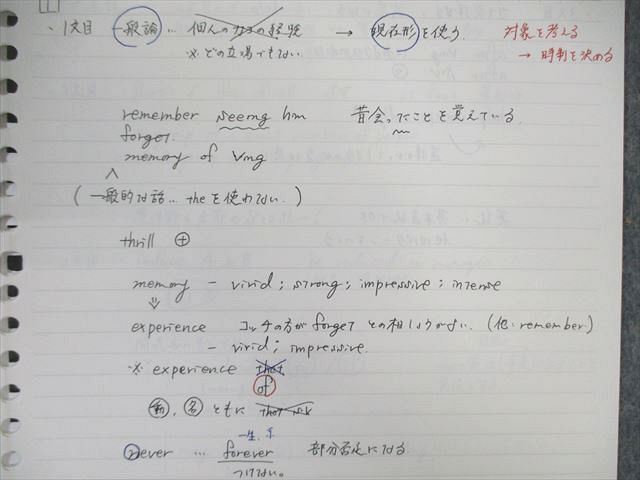 1
・1文目 一般論… 個人の経験 → 現在形を使う 対象を考える
※どの立場でもない → 時制を決める
remember seeing him 昔会ったことを覚えている
forget.
memory of Ving
(一般的な話… theを使わない。)
thrill ⊕
memory - vivid ; strong ; impressive ; intense
⇓
experience コッチの方がforgetとの相しょうがよい。(他: remember)
- vivid ; impressive.
※ experience that
of
動, 名 ともに that
never … forever 部分否定になる
つけない。